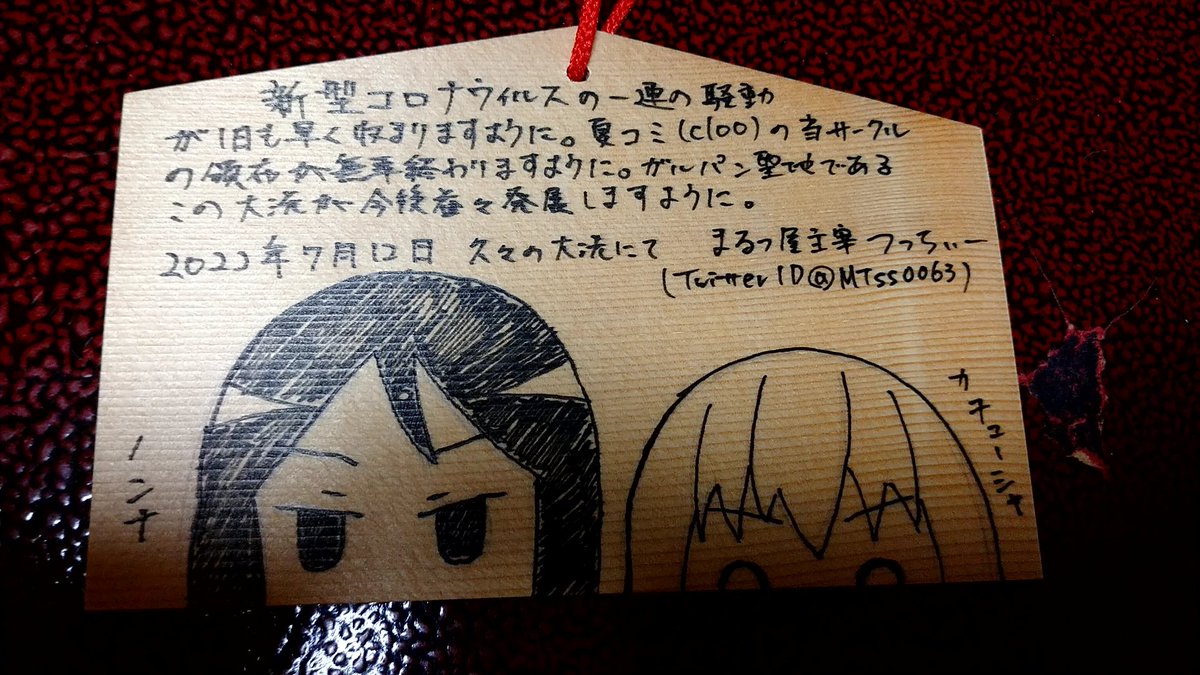 新型コロナウィルスの一連の騒動
が1日も早く収まりますように。夏コミ(C100)の当サークル
の頒布が無事終わりますように。ガルパン聖地である
この大洗が今後益々発展しますように。
2022年7月12日 久々の大洗にて まるつ屋主宰つっちぃー
(Twitter ID@MTss0063)
ノンナ
カチューシャ